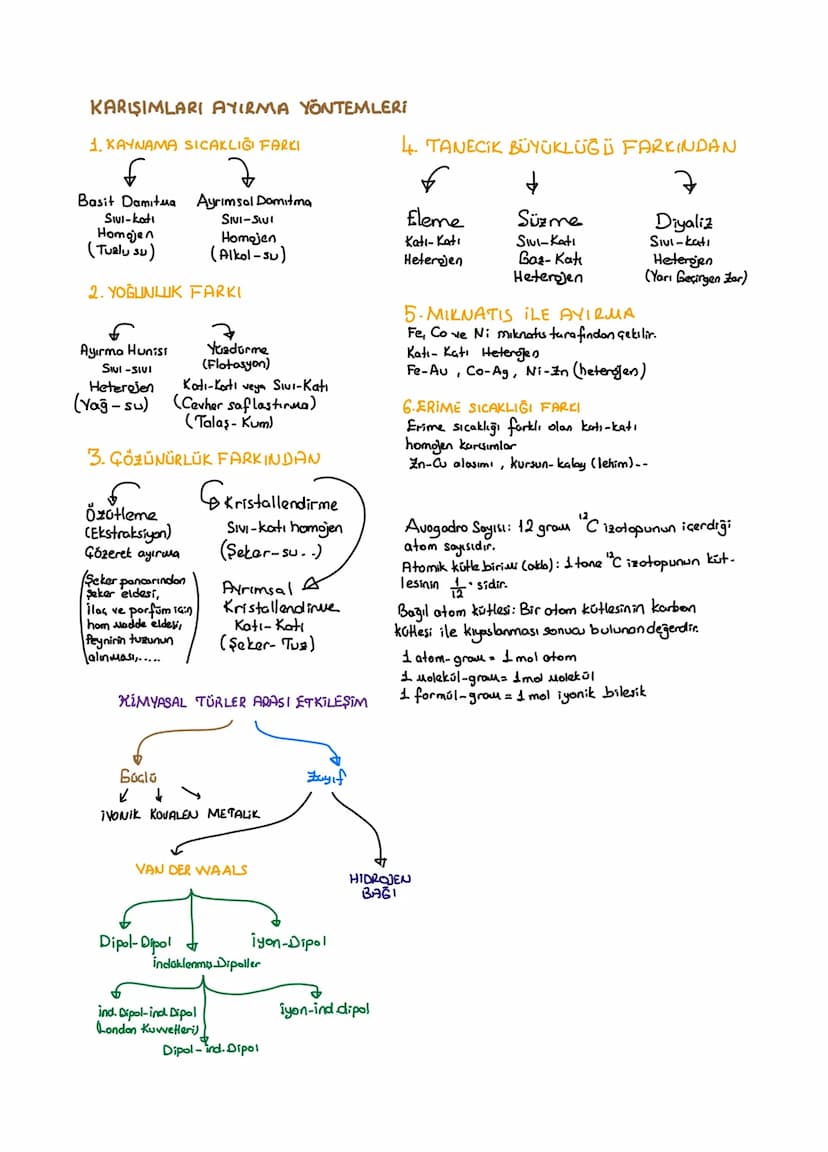 KARIŞIMLARI AYIRMA YÖNTEMLERİ
1. KAYNAMA SICAKLIĞI FARKI
Basit Damıtma
Sıvı-katı
Homojen
(Tuzlu su)
Ayrımsal Damıtma
Sıvı-Sıvı
Homojen
(Alkol-su)
2. YOĞUNLUK FARKI
Ayırma Hunisi
Sıvı-sıvı
Heterojen
(Yağ-su)
Yüzdürme
(Flotasyon)
Katı-Katı veya Sıvı-Katı
(Cevher saflaştırma)
(Talaş-Kum)
3. ÇÖZÜNÜRLÜK FARKINDAN
Özütleme
(Ekstraksiyon)
Çözerek ayırma
(Şeker pancarından
şeker eldesi,
İlaç ve parfüm için
ham madde eldesi,
Peynirin tuzunun
alınması,.....)
Kristallendirme
Sıvı-katı homojen
(Şeker-su..)
Ayrımsal
Kristallendirme
Katı-Katı
(Şeker-Tuz)
4. TANECİK BÜYÜKLÜĞÜ FARKINDAN
Eleme
Katı-Katı
Heterojen
Süzme
Sıvı-Katı
Gaz-Katı
Heterojen
Diyaliz
Sıvı-katı
Heterojen
(Yarı Geçirgen Zar)
5. MIKNATIS İLE AYIRMA
Fe, Co ve Ni mıknatıs tarafından çekilir.
Katı-Katı Heterojen
Fe-Au, Co-Ag, Ni-Zn (heterojen)
6.ERİME SICAKLIĞI FARKI
Erime sıcaklığı farklı olan katı-katı
homojen karışımlar
Zn-Cu alaşımı, kurşun-kalay (lehim)--
Avogadro Sayısı: 12 gram ¹²C izotopunun içerdiği
atom sayısıdır.
Atomik kütle birimi (akb): 1 tane ¹²C izotopunun küt-
lesinin 1/12'sidir.
Bağıl atom kütlesi: Bir atom kütlesinin karbon
kütlesi ile kıyaslanması sonucu bulunan değerdir.
1 atom-gram = 1 mol atom
1 molekül-gram = 1mol molekül
1 formül-gram = 1 mol iyonik bileşik
KİMYASAL TÜRLER ARASI ETKİLEŞİM
Güçlü
Zayıf
İYONİK KOVALEN METALİK
VAN DER WAALS
HİDROJEN
BAĞI
Dipol-Dipol
İyon-Dipol
İndüklenmiş Dipoller
İnd. Dipol-ind. Dipol
(London Kuvvetleri)
İyon-ind.dipol
Dipol-ind.Dipol